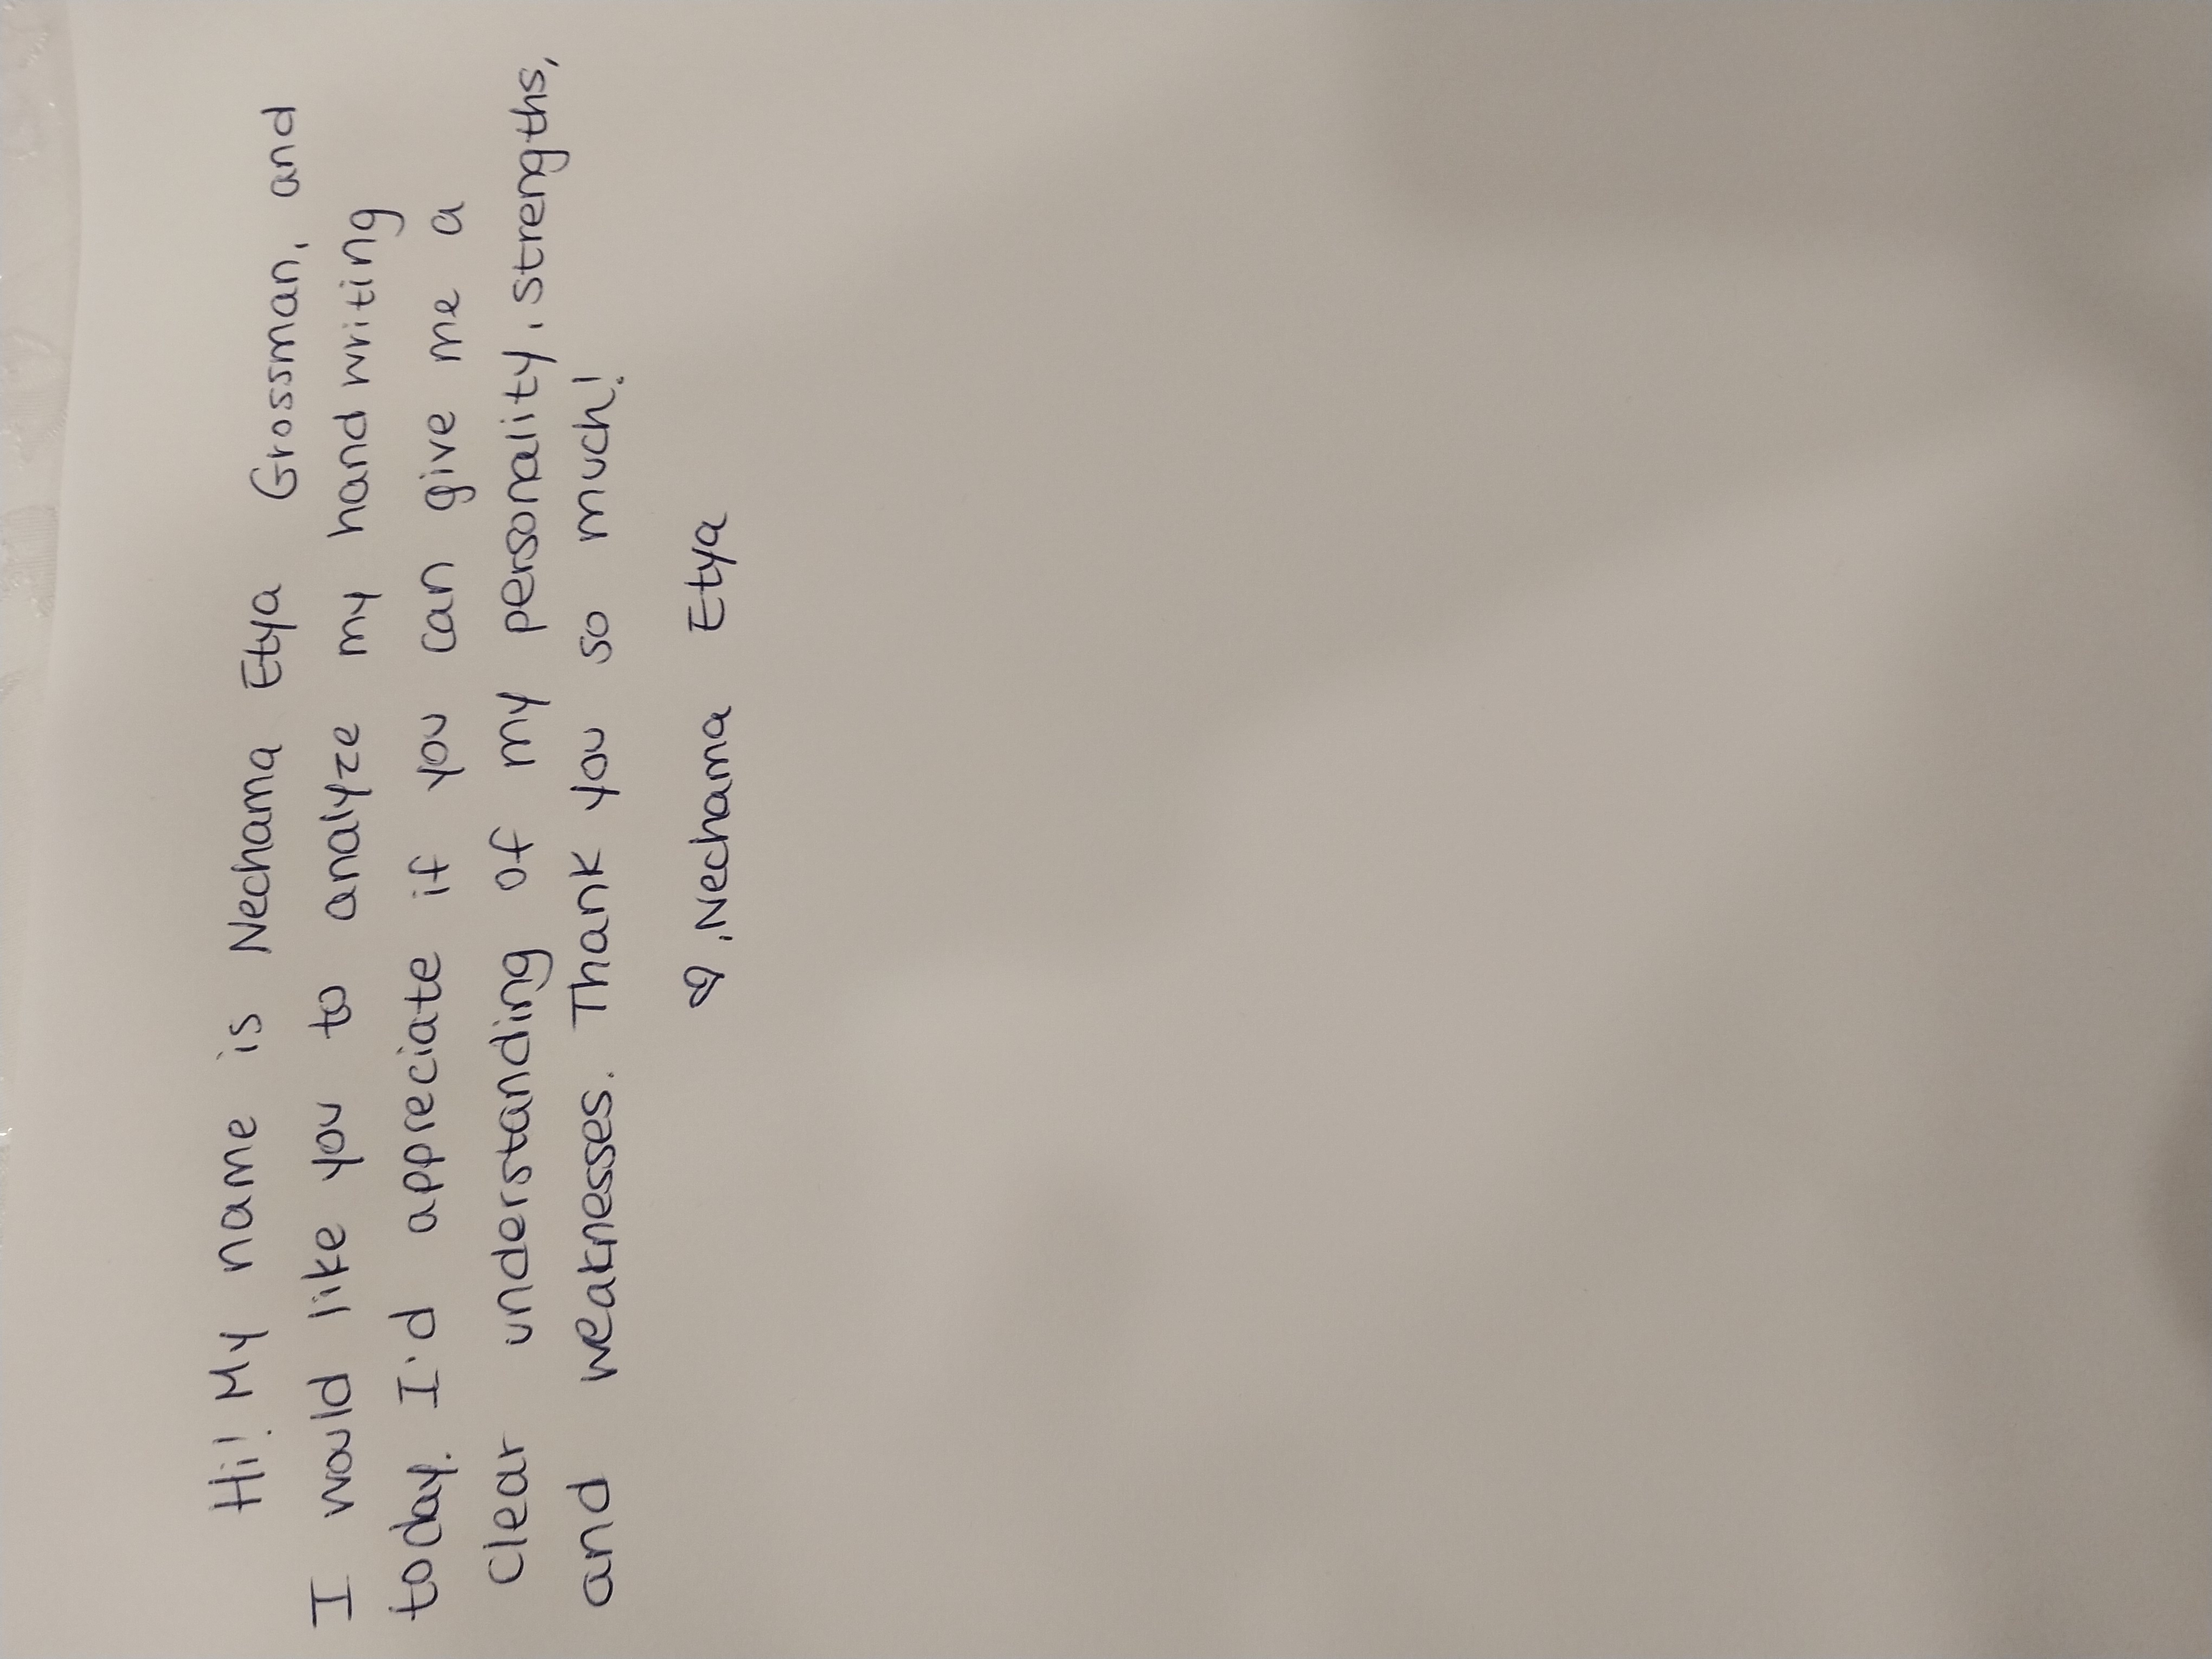 Hi! My name is Nechama Etya Grossman, and
I would like you to analyze my handwriting
today. I'd appreciate if you can give me a
clear understanding of my personality, strengths,
and weaknesses. Thank you so much!
♡, Nechama Etya